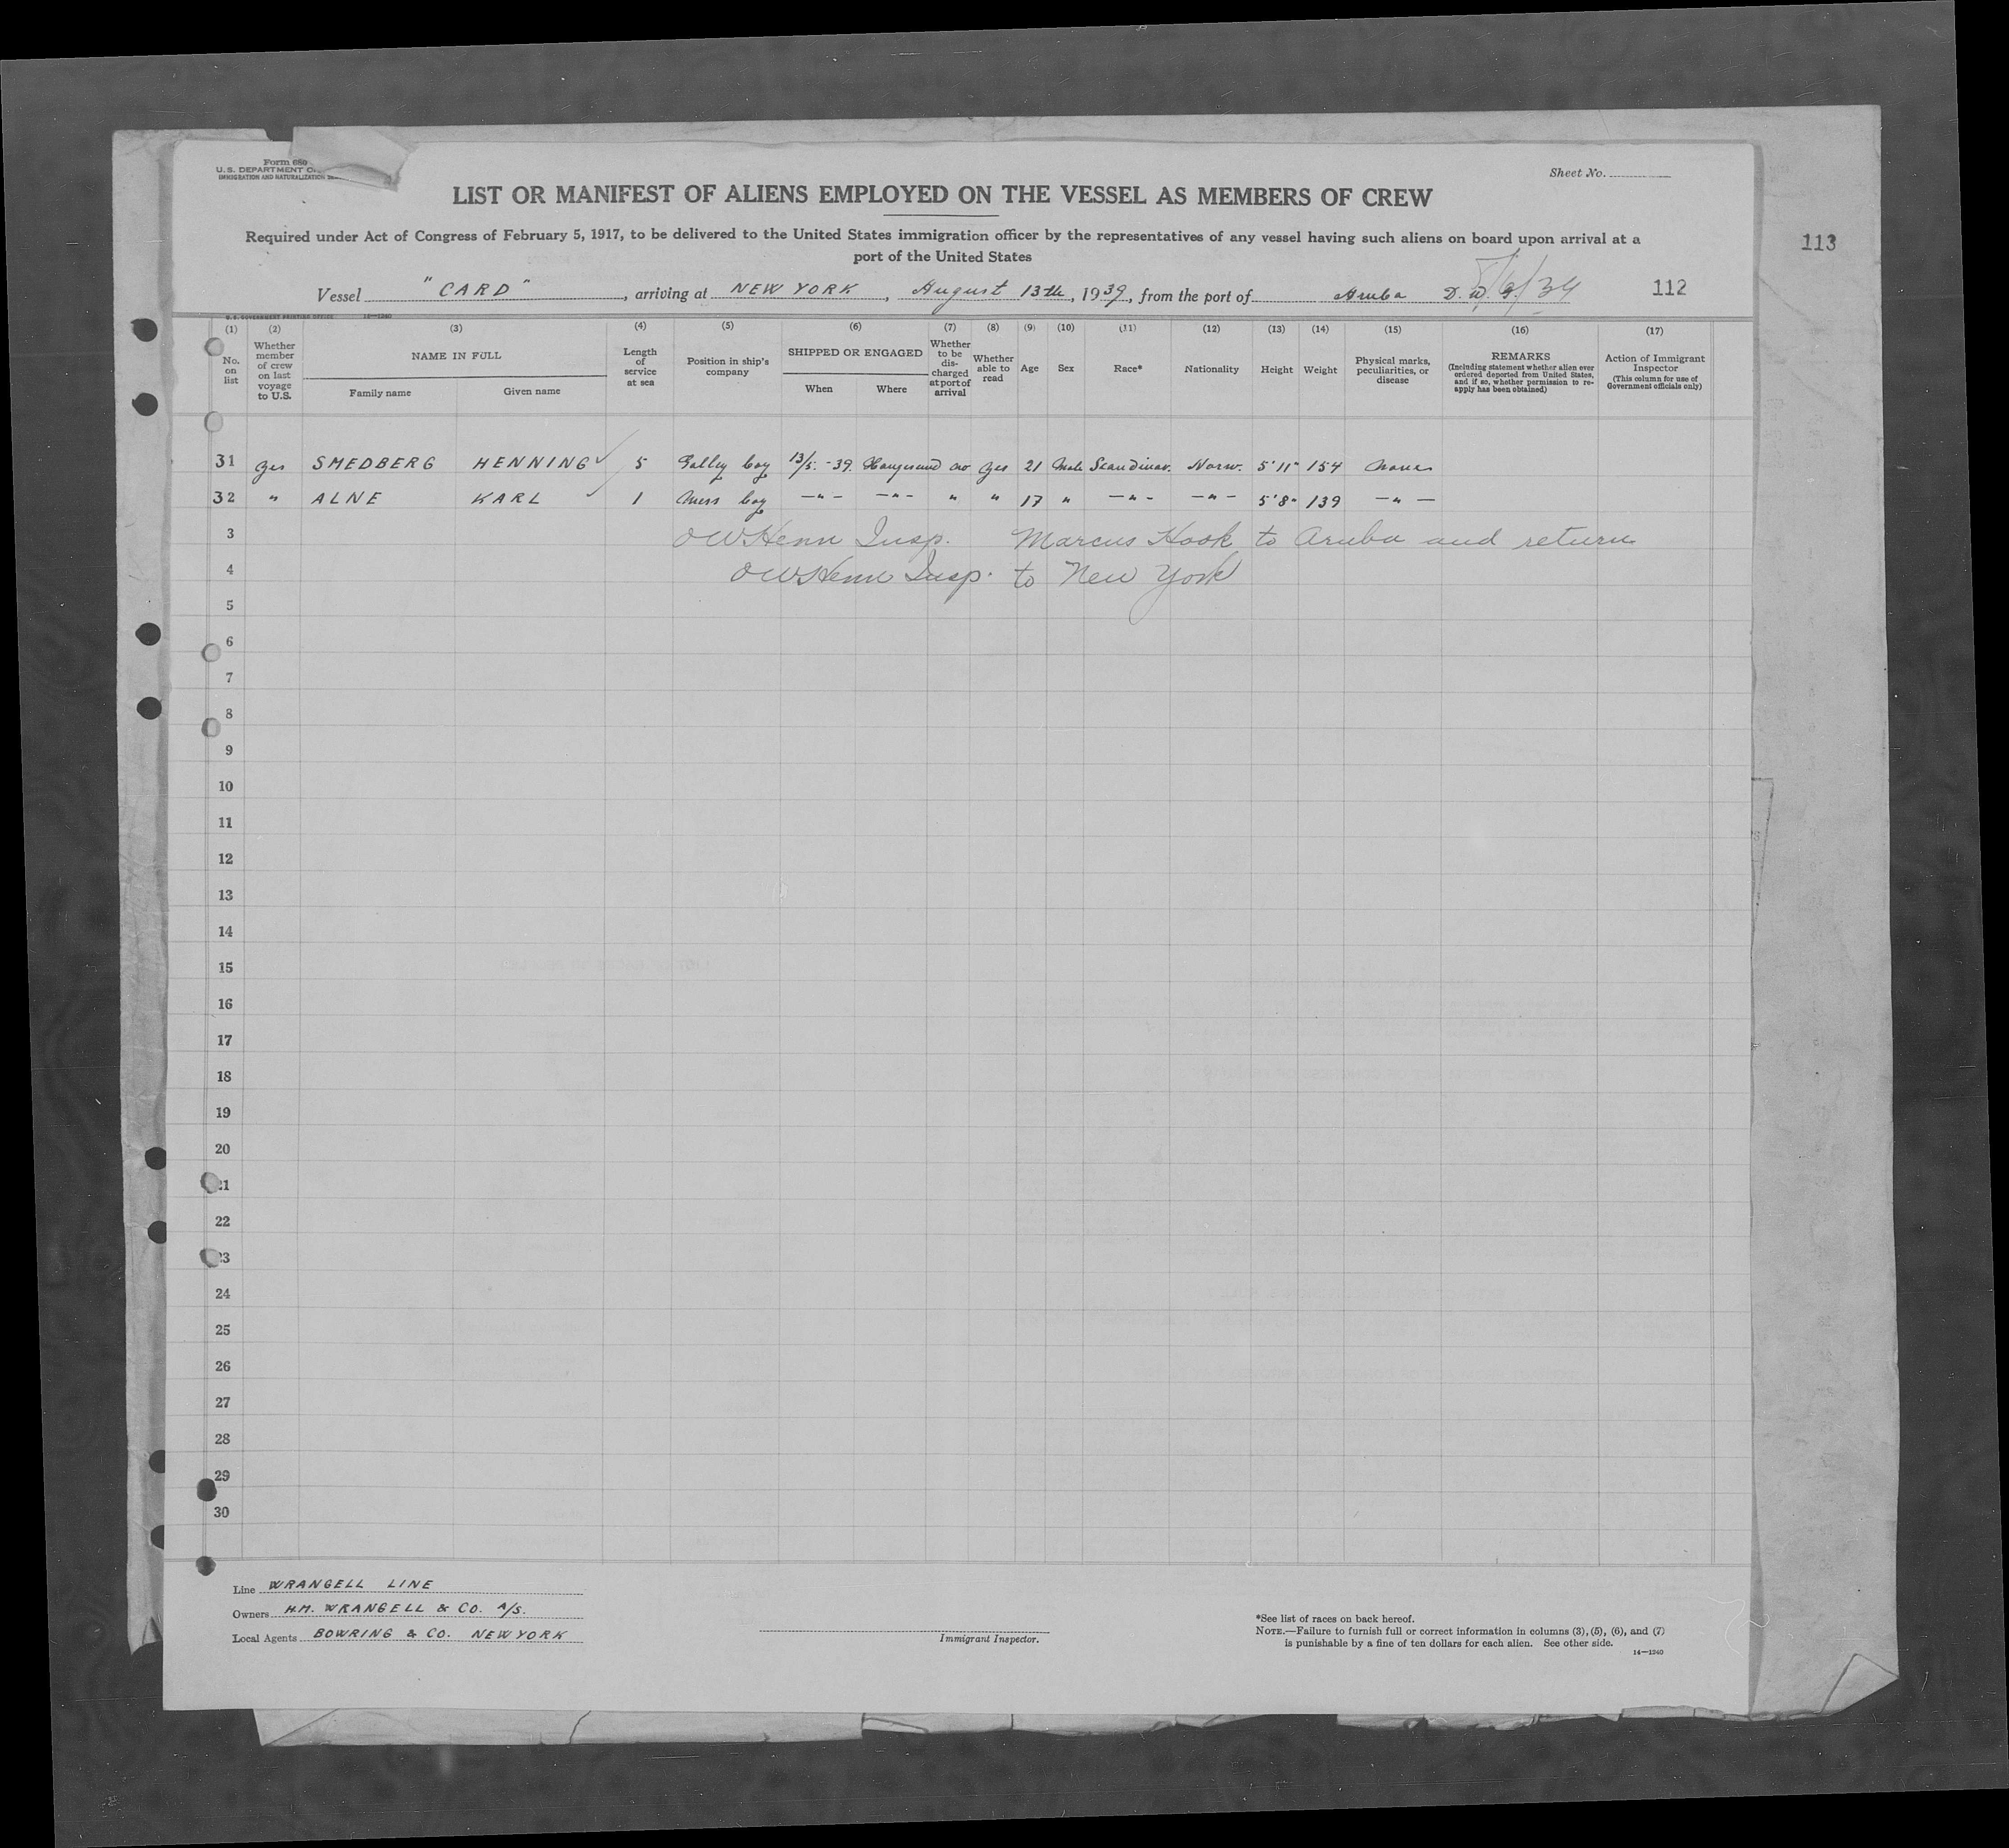 Form 680
U. S. DEPARTMENT O
IMMIGRATION AND NATURALIZATION
Sheet No.
LIST OR MANIFEST OF ALIENS EMPLOYED ON THE VESSEL AS MEMBERS OF CREW
Required under Act of Congress of February 5, 1917, to be delivered to the United States immigration officer by the representatives of any vessel having such aliens on board upon arrival at a
port of the United States
113
Vessel "CARD", arriving at NEW YORK, August 13th, 1939, from the port of Aruba D. W. I.
112
U. S. GOVERNMENT PRINTING OFFICE 14—1240
(1) (2) (3) (4) (5) (6) (7) (8) (9) (10) (11) (12) (13) (14) (15) (16) (17)
No. on list
Whether member of crew on last voyage to U.S.
NAME IN FULL
Family name
Given name
Length of service at sea
Position in ship's company
SHIPPED OR ENGAGED
When
Where
Whether to be discharged at port of arrival
Whether able to read
Age
Sex
Race*
Nationality
Height
Weight
Physical marks, peculiarities, or disease
REMARKS
(Including statement whether alien ever ordered deported from United States, and if so, whether permission to reapply has been obtained)
Action of Immigrant Inspector
(This column for use of Government officials only)
31 yes SMEDBERG HENNING 5 Galley boy 13/5.-39. Haugesund no yes 21 Male Scandinav. Norw. 5'11" 154 None
32 " ALNE KARL 1 Mess boy —"— —"— " " 17 " —"— —"— 5'8" 139 —"—
3 OWHenn Insp. Marcus Hook to Aruba and return
4 OWHenn Insp. to New York
5
6
7
8
9
10
11
12
13
14
15
16
17
18
19
20
21
22
23
24
25
26
27
28
29
30
Line WRANGELL LINE
Owners H.M. WRANGELL & CO. A/S.
Local Agents BOWRING & CO. NEW YORK
Immigrant Inspector.
*See list of races on back hereof.
NOTE.—Failure to furnish full or correct information in columns (3), (5), (6), and (7)
is punishable by a fine of ten dollars for each alien. See other side.
14—1240